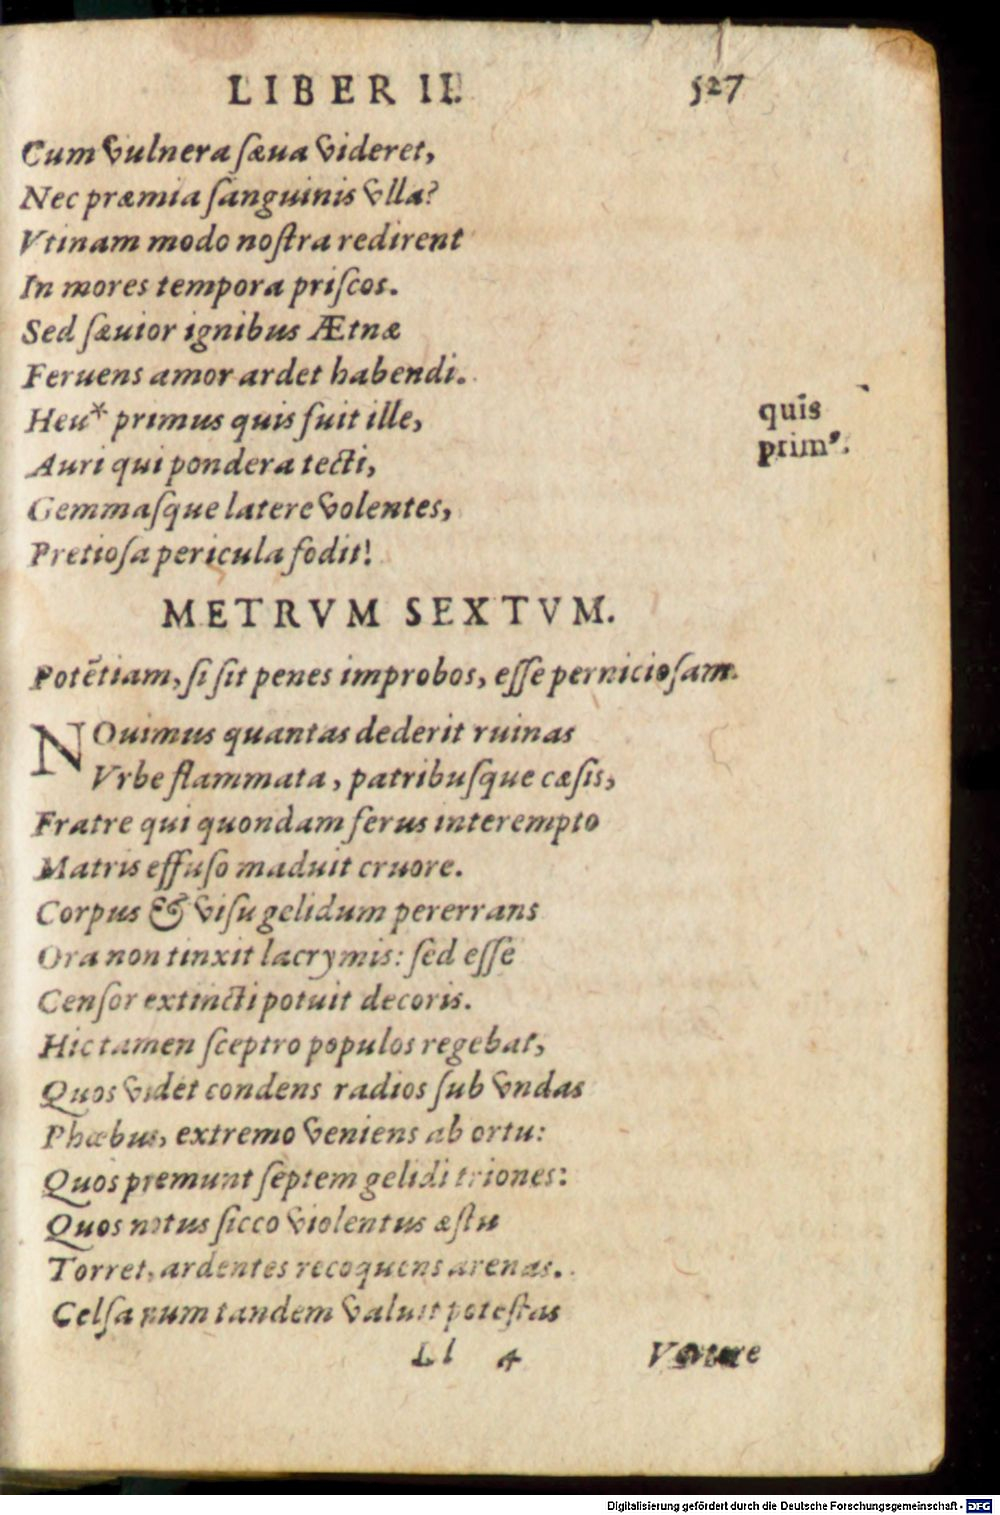 LIBER II. 527
Cum vulnera ſæua videret,
Nec præmia ſanguinis vlla?
Vtinam modo noſtra redirent
In mores tempora priſcos.
Sed ſæuior ignibus Ætnæ
Feruens amor ardet habendi.
Heu* primus quis fuit ille,
quis
prim⁹.
Auri qui pondera tecti,
Gemmaſque latere volentes,
Pretioſa pericula fodit!
METRVM SEXTVM.
Potẽtiam, ſi ſit penes improbos, eſſe pernicioſam.
NOuimus quantas dederit ruinas
Vrbe flammata, patribuſque cæſis,
Fratre qui quondam ferus interempto
Matris effuſo maduit cruore.
Corpus & viſu gelidum pererrans
Ora non tinxit lacrymis: ſed eſſe
Cenſor extincti potuit decoris.
Hic tamen ſceptro populos regebat,
Quos videt condens radios ſub vndas
Phœbus, extremo veniens ab ortu:
Quos premunt ſeptem gelidi triones:
Quos notus ſicco violentus æſtu
Torret, ardentes recoquens arenas.
Celſa num tandem valuit poteſtas
Ll 4 Vertere
Digitalisierung gefördert durch die Deutsche Forschungsgemeinschaft - DFG